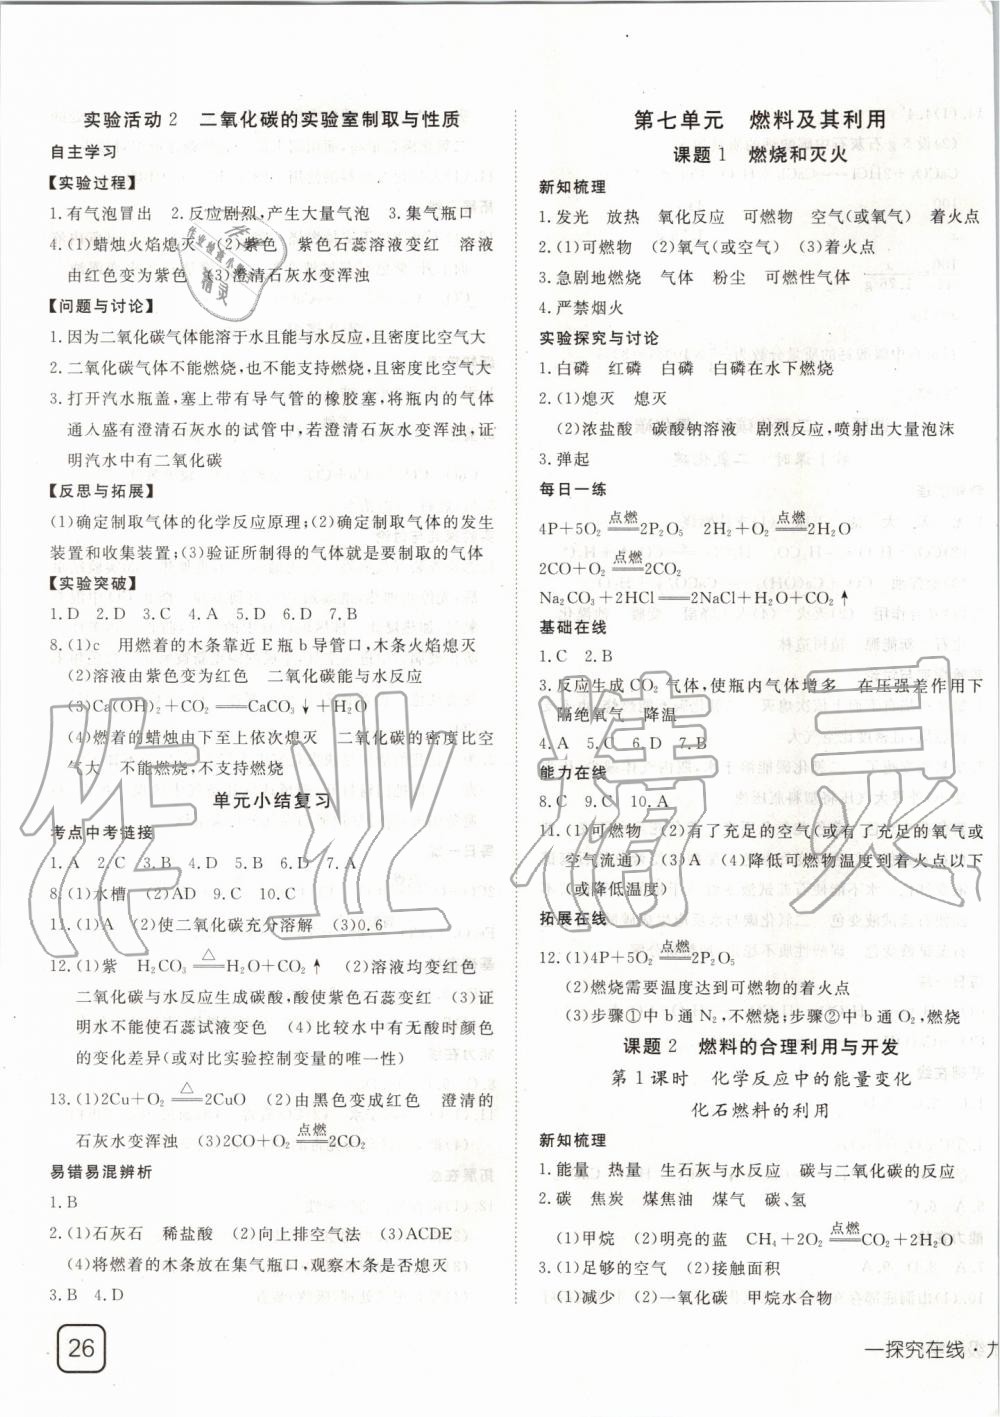 实验活动2 二氧化碳的实验室制取与性质
自主学习
【实验过程】
1.有气泡冒出 2.反应剧烈,产生大量气泡 3.集气瓶口
4.(1)蜡烛火焰熄灭 (2)紫色 紫色石蕊溶液变红 溶液
由红色变为紫色 (3)澄清石灰水变浑浊
【问题与讨论】
1.因为二氧化碳气体能溶于水且能与水反应,且密度比空气大
2.二氧化碳气体不能燃烧,也不能支持燃烧,且密度比空气大
3.打开汽水瓶盖,塞上带有导气管的橡胶塞,将瓶内的气体
通入盛有澄清石灰水的试管中,若澄清石灰水变浑浊,证
明汽水中有二氧化碳
【反思与拓展】
(1)确定制取气体的化学反应原理;(2)确定制取气体的发生
装置和收集装置;(3)验证所制得的气体就是要制取的气体
【实验突破】
1.D 2.D 3.C 4.A 5.D 6.D 7.B
8.(1)c 用燃着的木条靠近E瓶b导管口,木条火焰熄灭
(2)溶液由紫色变为红色 二氧化碳能与水反应
(3)Ca(OH)₂+CO₂══CaCO₃↓+H₂O
(4)燃着的蜡烛由下至上依次熄灭 二氧化碳的密度比空
气大 不能燃烧,不支持燃烧
单元小结复习
考点中考链接
1.A 2.C 3.B 4.D 5.B 6.D 7.A
8.(1)水槽 (2)AD 9.C 10.C
11.(1)A (2)使二氧化碳充分溶解 (3)0.6
12.(1)紫 H₂CO₃ ═△═ H₂O+CO₂↑ (2)溶液均变红色
二氧化碳与水反应生成碳酸,酸使紫色石蕊变红 (3)证
明水不能使石蕊试液变色 (4)比较水中有无酸时颜色
的变化差异(或对比实验控制变量的唯一性)
13.(1)2Cu+O₂ ═△═ 2CuO (2)由黑色变成红色 澄清的
石灰水变浑浊 (3)2CO+O₂ ═点燃═ 2CO₂
易错易混辨析
1.B
2.(1)石灰石 稀盐酸 (2)向上排空气法 (3)ACDE
(4)将燃着的木条放在集气瓶口,观察木条是否熄灭
3.B 4.D
26
第七单元 燃料及其利用
课题1 燃烧和灭火
新知梳理
1.发光 放热 氧化反应 可燃物 空气(或氧气) 着火点
2.(1)可燃物 (2)氧气(或空气) (3)着火点
3.急剧地燃烧 气体 粉尘 可燃性气体
4.严禁烟火
实验探究与讨论
1.白磷 红磷 白磷 白磷在水下燃烧
2.(1)熄灭 熄灭
(2)浓盐酸 碳酸钠溶液 剧烈反应,喷射出大量泡沫
3.弹起
每日一练
4P+5O₂ ═点燃═ 2P₂O₅ 2H₂+O₂ ═点燃═ 2H₂O
2CO+O₂ ═点燃═ 2CO₂
Na₂CO₃+2HCl══2NaCl+H₂O+CO₂↑
基础在线
1.C 2.B
3.反应生成CO₂气体,使瓶内气体增多 在压强差作用下
隔绝氧气 降温
4.A 5.C 6.D 7.B
能力在线
8.C 9.C 10.A
11.(1)可燃物 (2)有了充足的空气(或有了充足的氧气或
空气流通) (3)A (4)降低可燃物温度到着火点以下
(或降低温度)
拓展在线
12.(1)4P+5O₂ ═点燃═ 2P₂O₅
(2)燃烧需要温度达到可燃物的着火点
(3)步骤①中b通N₂,不燃烧;步骤②中b通O₂,燃烧
课题2 燃料的合理利用与开发
第1课时 化学反应中的能量变化
化石燃料的利用
新知梳理
1.能量 热量 生石灰与水反应 碳与二氧化碳的反应
2.碳 焦炭 煤焦油 煤气 碳、氢
(1)甲烷 (2)明亮的蓝 CH₄+2O₂ ═点燃═ CO₂+2H₂O
3.(1)足够的空气 (2)接触面积
(1)减少 (2)一氧化碳 甲烷水合物
一探究在线·九
作业精灵